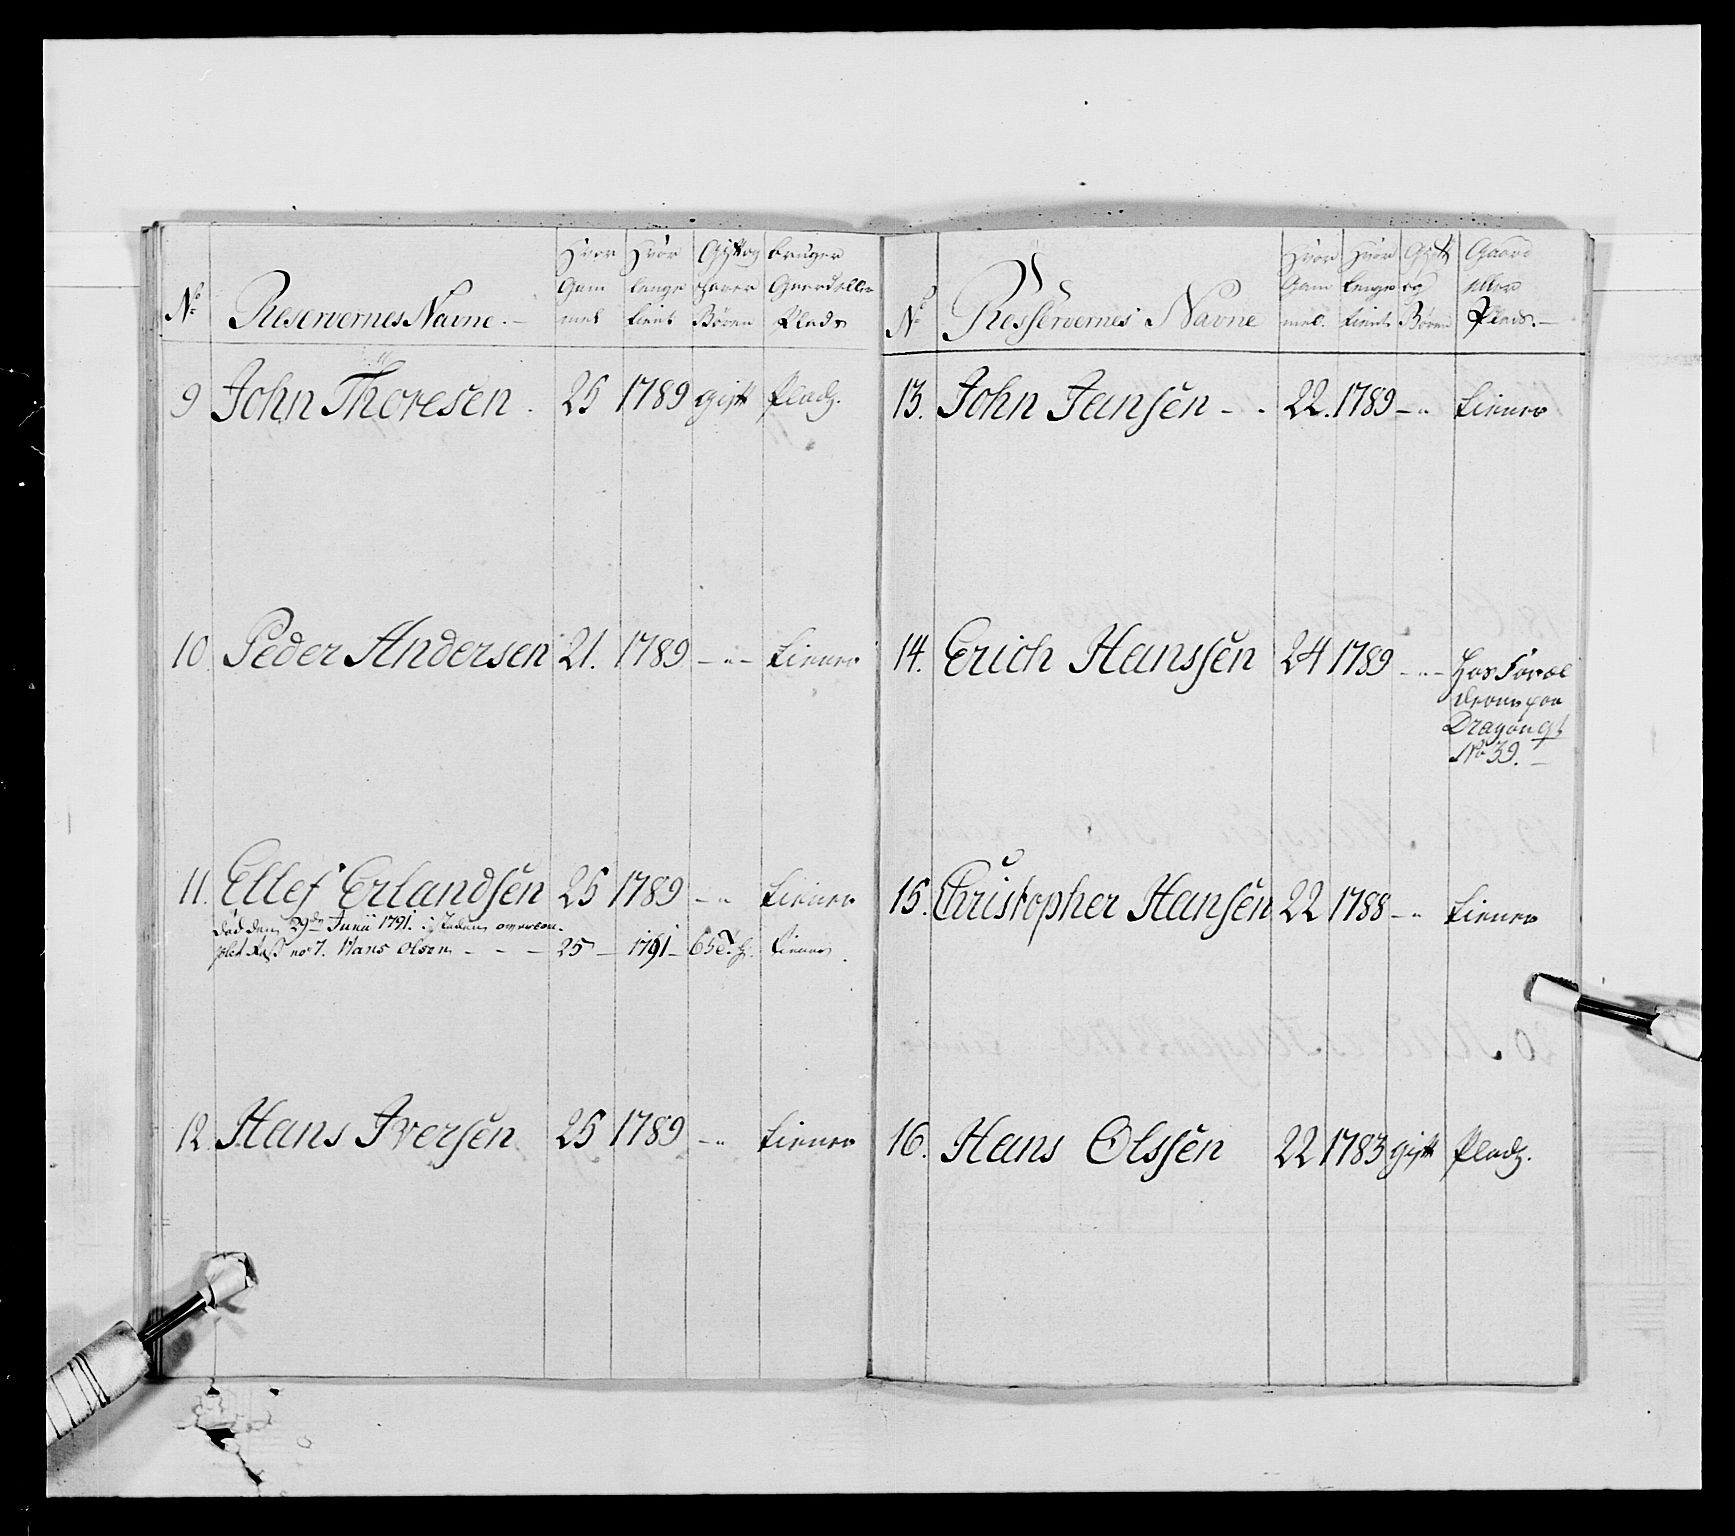 No Reservernes Navne. Hvor Gammel Hvor lenge tient Gift og haver Børen bruger Gaard eller Plads
9 John Thoresen. 25 1789 gift Pladz.
10. Peder Andersen 21. 1789 - " - tiener
11. Ellef Erlandsen 25 1789 - " tiener
død den 29de Junii 1791. i steden overcom-
plet Ress no 7. Hans Olsen - - - 25 - 1791 - tiener
12. Hans Iversen 25 1789 - " tiener
No Resservernes Navne Hvor Gammel. Hvor lenge tient Gift og Børen Gaard eller Plads. -
13. John Jansen - - 22. 1789 - " tiener
14. Erich Hanssen 24 1789 - " - hos Foræl
derne paa
Dragon Qt
No 39. -
15. Christopher Hansen 22 1788 - " tiener
16. Hans Olssen 22 1783 gift Pladz.